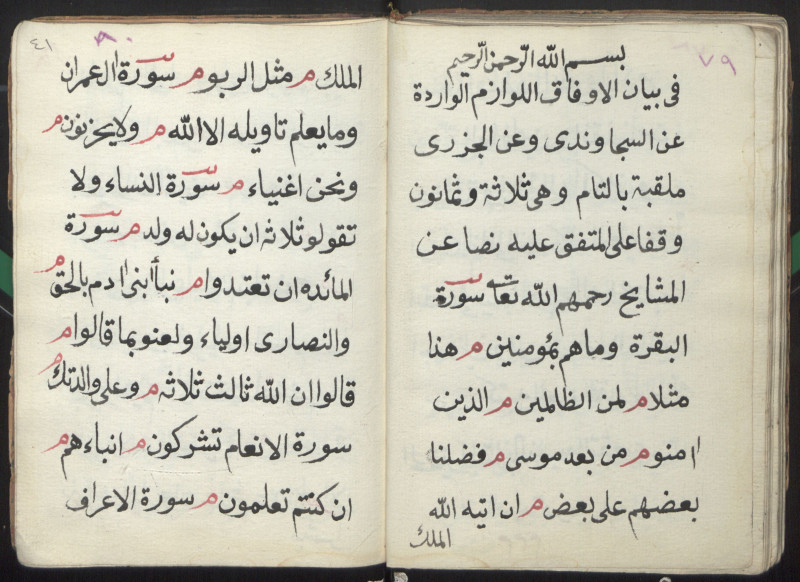 ٧٩
بسم الله الرحمن الرحيم
فى بيان الاوفاق اللوازم الواردة
عن السجاوندى وعن الجزرى
ملقبة بالتام وهى ثلاثة وثمانون
وقفا على المتفق عليه نصا عن
المشايخ رحمهم الله تعالى سورة
البقرة وماهم بمؤمنين م هذا
مثلا م لمن الظالمين م الذين
امنو م من بعد موسى م فضلنا
بعضهم على بعض م ان اتيه الله
الملك
٨٠
٤١
الملك م مثل الربو م سورة ال عمران
وما يعلم تاويله الا الله م ولا يحزنون م
ونحن اغنياء م سورة النساء ولا
تقولو ثلاثه ان يكون له ولد م سورة
المائده ان تعتدوا م نبأ ابنى ادم بالحق م
والنصارى اولياء ولعنو بما قالوا م
قالوا ان الله ثالث ثلاثه م وعلى والدتك م
سورة الانعام تشركون م ابناءهم م
ان كنتم تعلمون م سورة الاعراف